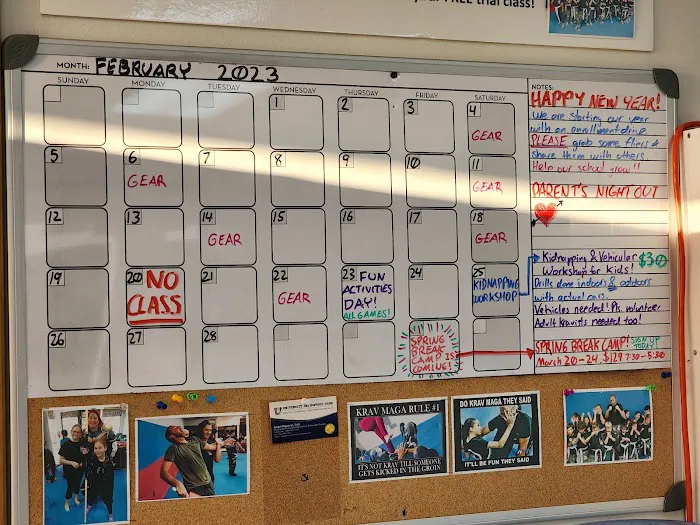 your FREE trial class!
MONTH: FEBRUARY 2023
SUNDAY MONDAY TUESDAY WEDNESDAY THURSDAY FRIDAY SATURDAY
1 2 3 4
GEAR
5 6 7 8 9 10 11
GEAR GEAR
12 13 14 15 16 17 18
GEAR GEAR
19 20 21 22 23 24 25
NO
CLASS
GEAR
FUN
ACTIVITIES
DAY!
ALL GAMES!
KIDNAPPING
WORKSHOP
26 27 28
SPRING
BREAK
CAMP IS
COMING!
NOTES:
HAPPY NEW YEAR!
We are starting our year
with an enrollment drive.
PLEASE grab some fliers &
share them with others.
Help our school grow!!
PARENT'S NIGHT OUT
Kidnapping & Vehicular $30
Workshop for Kids!
Drills done indoors & outdoors
with actual cars.
Vehicles needed! Pls. volunteer
Adult Kravists needed too!
SPRING BREAK CAMP! SIGN UP
TODAY!
March 20-24. $129 7:30-5:30
KRAV MAGA RULE #1
IT'S NOT KRAV TILL SOMEONE
GETS KICKED IN THE GROIN
DO KRAV MAGA THEY SAID
IT'LL BE FUN THEY SAID